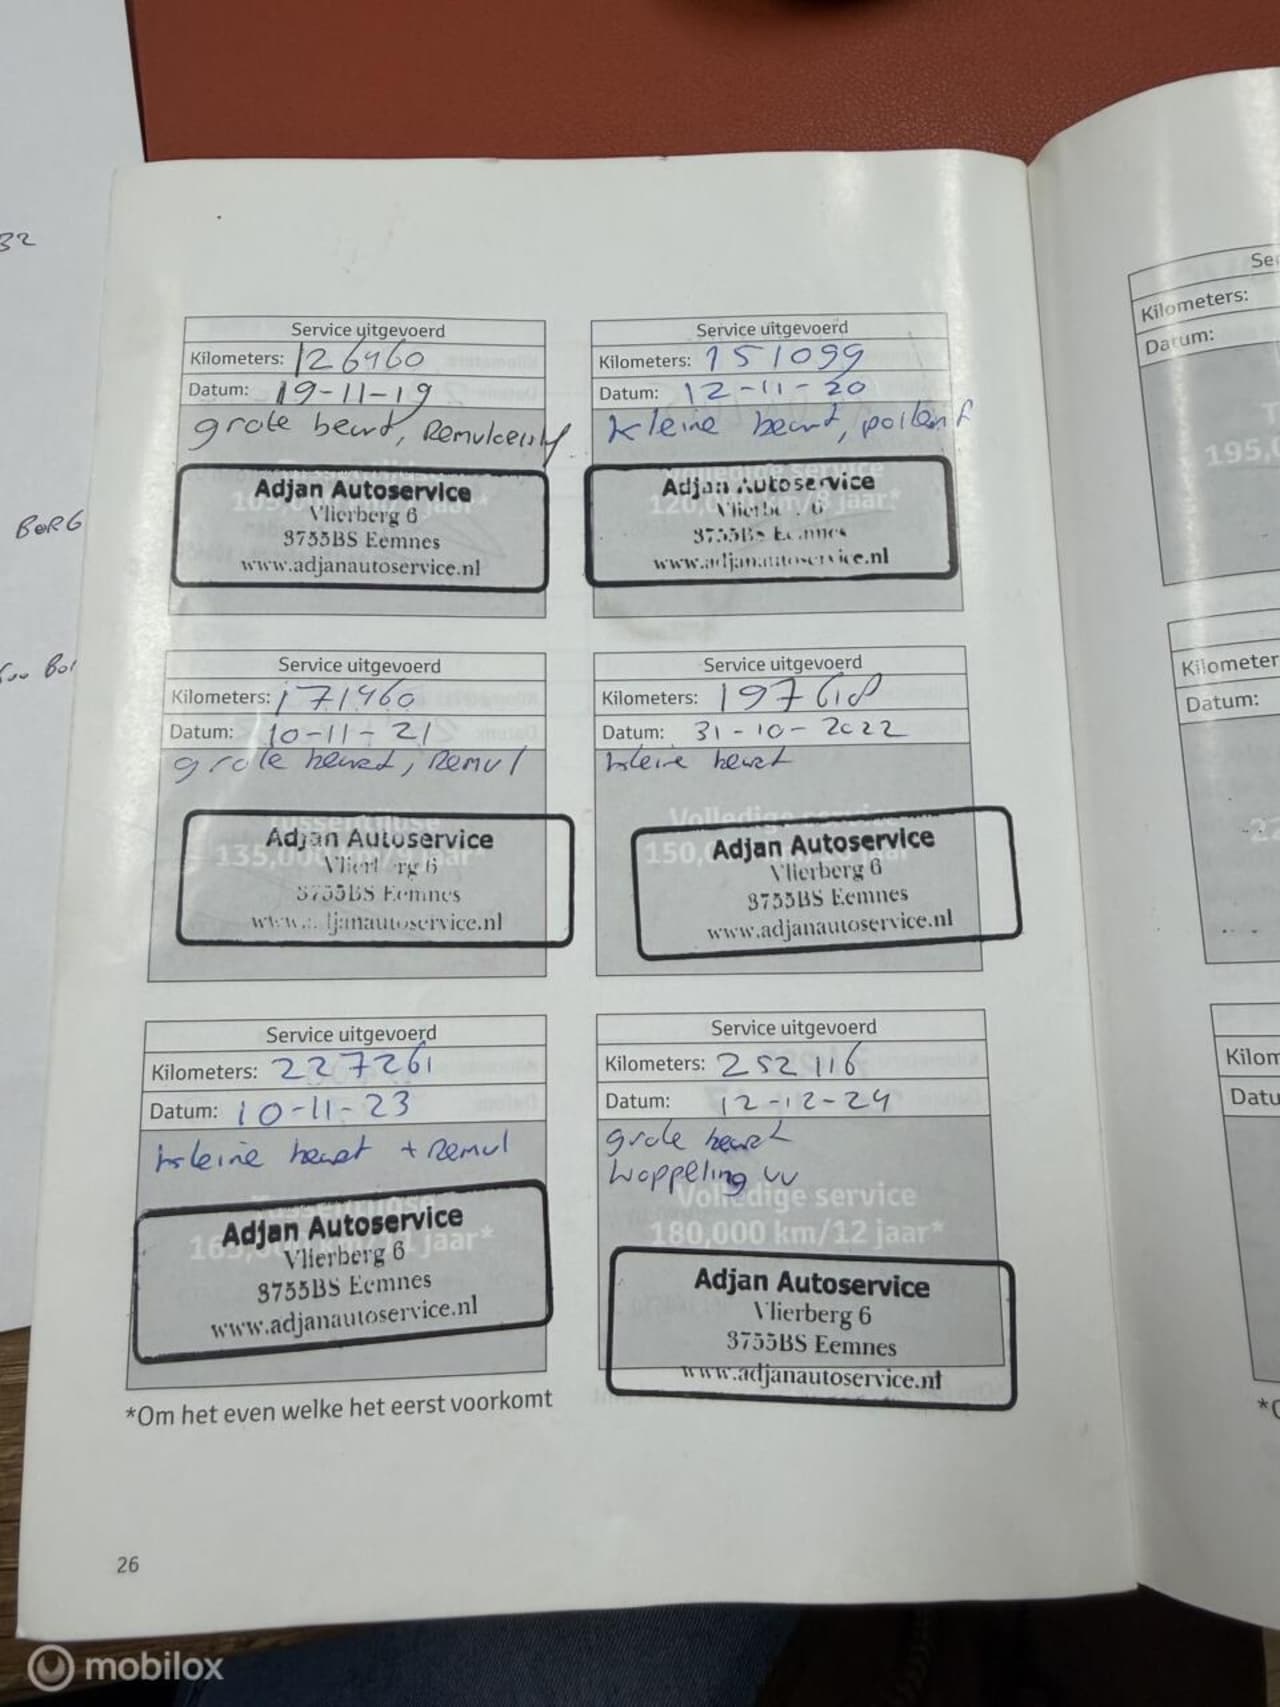 32
BORG
Service uitgevoerd
Kilometers: 126460
Datum: 19-11-19
grote beurt, Remvloeistof
105,000 km/7 jaar*
Adjan Autoservice
Vlierberg 6
3755BS Eemnes
www.adjanautoservice.nl
Service uitgevoerd
Kilometers: 151099
Datum: 12-11-20
kleine beurt, pollenf
Volledige service
120,000 km/8 jaar*
Adjan Autoservice
Vlierberg 6
3755BS Eemnes
www.adjanautoservice.nl
Service uitgevoerd
Kilometers: 171460
Datum: 10-11-21
grote beurt, Remvl
Tussentijdse
135,000 km/9 jaar*
Adjan Autoservice
Vlierberg 6
3755BS Eemnes
www.adjanautoservice.nl
Service uitgevoerd
Kilometers: 197618
Datum: 31-10-2022
kleine beurt
Volledige service
150,000 km/10 jaar*
Adjan Autoservice
Vlierberg 6
3755BS Eemnes
www.adjanautoservice.nl
Service uitgevoerd
Kilometers: 227261
Datum: 10-11-23
kleine beurt + Remvl
Tussentijdse
165,000 km/11 jaar*
Adjan Autoservice
Vlierberg 6
3755BS Eemnes
www.adjanautoservice.nl
Service uitgevoerd
Kilometers: 252116
Datum: 12-12-24
grote beurt
koppeling vv
Volledige service
180,000 km/12 jaar*
Adjan Autoservice
Vlierberg 6
3755BS Eemnes
www.adjanautoservice.nl
*Om het even welke het eerst voorkomt
26
Kilometers:
Datum:
195,0
Kilometer
Datum:
22
Kilom
Datu
mobilox